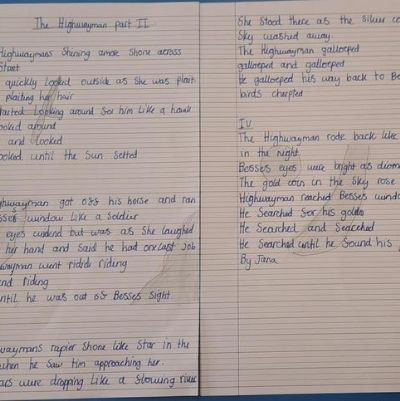 The Highwayman part II
Highwaymans Shining amore Shone across
quickly looked outside as She was plait
plaiting her hair
Looking around for him Like a hawk
around
and Looked
until the Sun Setted
got off his horse and ran
window Like a Soldier
eyes but was as She laughed
her hand and Said he had one last Job
went riding riding
riding
until he was out of Besses Sight
rapier Shone like Star in the
when he Saw Tim approaching her.
were dropping Like a flowing river
She Stood there as the Silver
Sky washed away
The Highwayman galloped
galloped and galloped
He galloped his way back to
birds chirped
IV
The Highwayman rode back like
in the night
Besses eyes were bright as
The gold coin in the Sky rose
Highwayman reached Besses
He Searched for his golds
He Searched and Searched
He Searched until he found his
By Jana